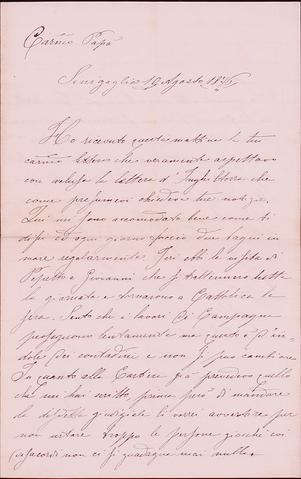 Carmo Papà
Senigaglia 19 Agosto 18
Ho ricevuto questa mattina la tua
carma lettera che veramente aspettavo
con la lettera d'Inghilterra che
come chiedeva tue notizie.
Qui mi sono accomodato bene come ti
dissi ed ogni giorno faccio due bagni in
mare regolarmente. Ieri ebbi la visita di
Peppetto e Giovanni che si trattennero tutta
la giornata e tornarono a Cattolica la
sera. Sento che i lavori di Campagna
proseguono lentamente ma questo è l'in-
dole dei contadini e non si può cambiare
In quanto alla Cartiera già prendevo quello
che mi hai scritto, prima però di mandare
la disdetta giudiziale li vorrei avvertire per
non urtare troppo le persone giacchè coi
disaccordi non ci si guadagna mai nulla